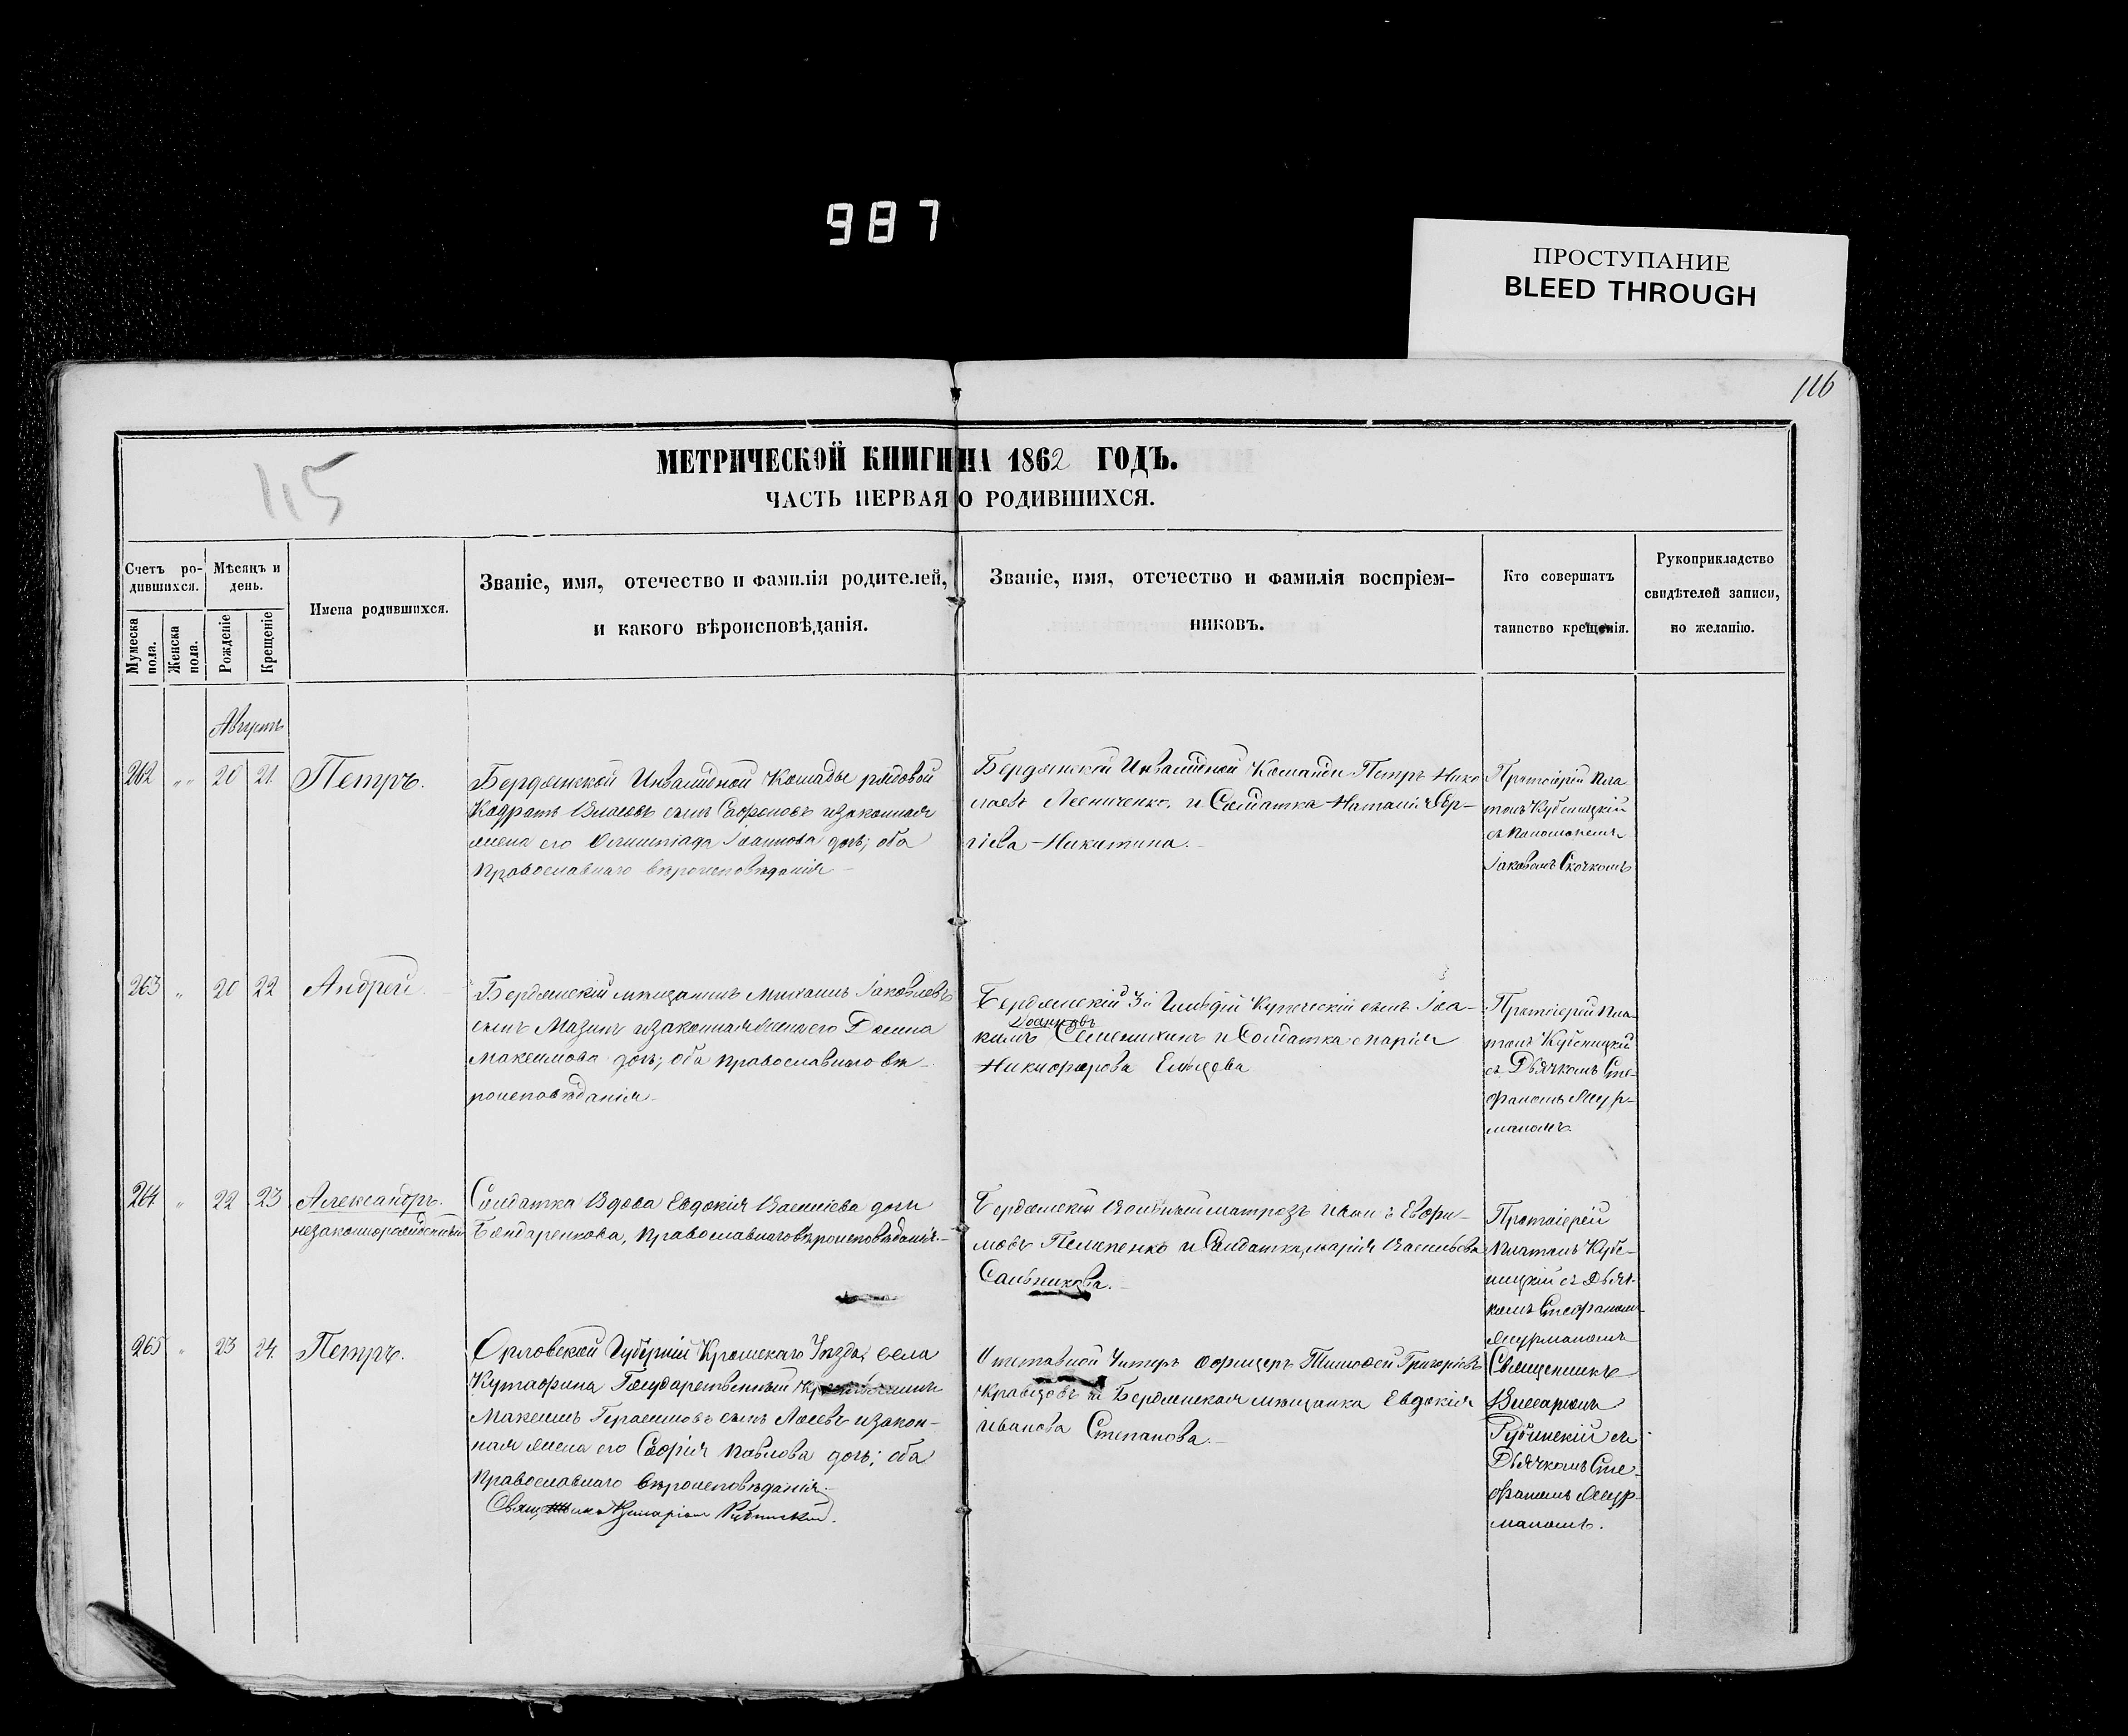 987
ПРОСТУПАНИЕ
BLEED THROUGH
116
115
МЕТРИЧЕСКОЙ КНИГИ НА 1862 ГОДЪ.
ЧАСТЬ ПЕРВАЯ О РОДИВШИХСЯ.
Счетъ ро-
дившихся.
Мѣсяцъ и
день.
Имена родившихся.
Званіе, имя, отечество и фамилія родителей,
и какого вѣроисповѣданія.
Званіе, имя, отечество и фамилія воспріем-
никовъ.
Кто совершатъ
таинство крещенія.
Рукоприкладство
свидѣтелей записи,
по желанію.
Мужеска
пола.
Женска
пола.
Рожденіе
Крещеніе
Августъ
262 " " 20 21. Петръ.
Бердянской Инвалидной Команды рядовой
Кодратъ Власовъ сынъ Сафоновъ изаконная
жена его Олимпіада Іоаннова дочь; оба
Православнаго вѣроисповѣданія
Бердянской Инвалидной Команды Петръ Нико
лаевъ Лесниченко, и Солдатка Наталія
гіева Никитина.
Протоіерей Пла
тонъ Кубеницкій
съ Пономаремъ
Іаковомъ Скочкомъ
263 " 20 22 Андрей
Бердянскій мѣщанинъ Михаилъ Іаковлевъ
сынъ Мазинъ изаконная жена его Домна
Максимова дочь; оба Православнаго вѣ-
роисповѣданія
Бердянскій 3й Гильдіи Купеческій сынъ Іоа-
кимъ Семенихинъ и Солдатка Марія
Никифорова Елецова
Протоіерей Пла-
тонъ Кубеницкій
съ Дьячкомъ Сте-
фаномъ Мур-
маномъ.
264 " 22 23 Александръ.
незаконнорожденный
Солдатка Вдова Евдокія Василіева дочь
Бондаренкова, Православнаго вѣроисповѣданія.
Бердянскій Вольный матрозъ Евфи-
мовъ и Солдатка Марія Васильева
Сальникова.
Протоіерей
Платонъ Кубе-
ницкій съ Дьяч-
комъ Стефаномъ
Мурманомъ
265 " 23 24. Петръ.
Орловской Губерніи Кромскаго Уѣзда, села
Кутафина Государственный Крестьянинъ
Максимъ Герасимовъ сынъ Лосевъ изакон-
ная жена его Софія Павлова дочь; оба
Православнаго вѣроисповѣданія.
Священникъ Виссаріонъ Рубинскій.
Отставной Унтеръ Офицеръ Тимофей Григорьевъ
Кравцовъ и Бердянская мѣщанка Евдокія
Иванова Степанова.
Священникъ
Виссаріонъ
Рубинскій съ
Дьячкомъ Сте-
фаномъ Мур-
маномъ.